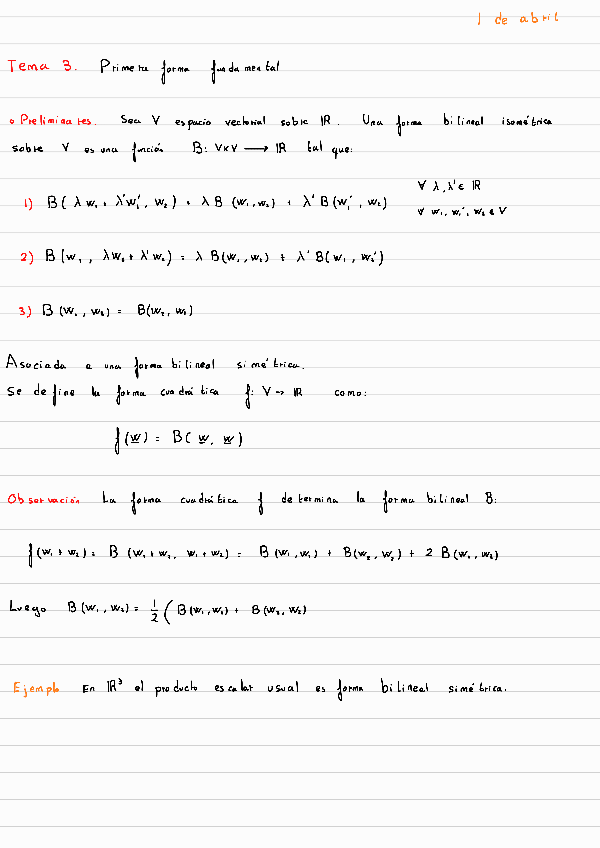 1 de abril
Tema 3. Primera forma fundamental
o Preliminares. Sea V espacio vectorial sobre IR. Una forma bilineal isométrica
sobre V es una función B: V×V → IR tal que:
1) B(λw₁ + λ'w₁', w₂) = λB(w₁,w₂) + λ'B(w₁', w₂) ∀ λ,λ' ∈ IR
∀ w₁, w₁', w₂ ∈ V
2) B(w₁, λw₂ + λ'w₂) = λ B(w₁,w₂) + λ' B(w₁, w₂')
3) B(w₁, w₂) = B(w₂, w₁)
Asociada a una forma bilineal simétrica.
Se define la forma cuadrática f: V → IR como:
f(w) = B(w, w)
Observación La forma cuadrática f determina la forma bilineal B:
f(w₁ + w₂) = B(w₁+w₂, w₁+w₂) = B(w₁,w₁) + B(w₂,w₂) + 2 B(w₁,w₂)
Luego B(w₁,w₂) = 1/2 ( B(w₁,w₁) + B(w₂,w₂)
Ejemplo En IR³ el producto escalar usual es forma bilineal simétrica.